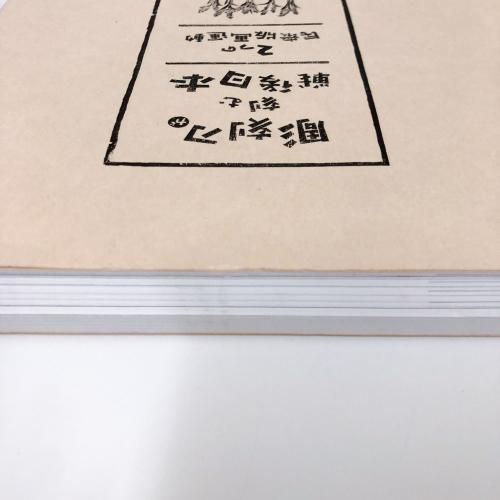 彫刻刀が
刻む
戦後日本
2つの
民衆版画運動